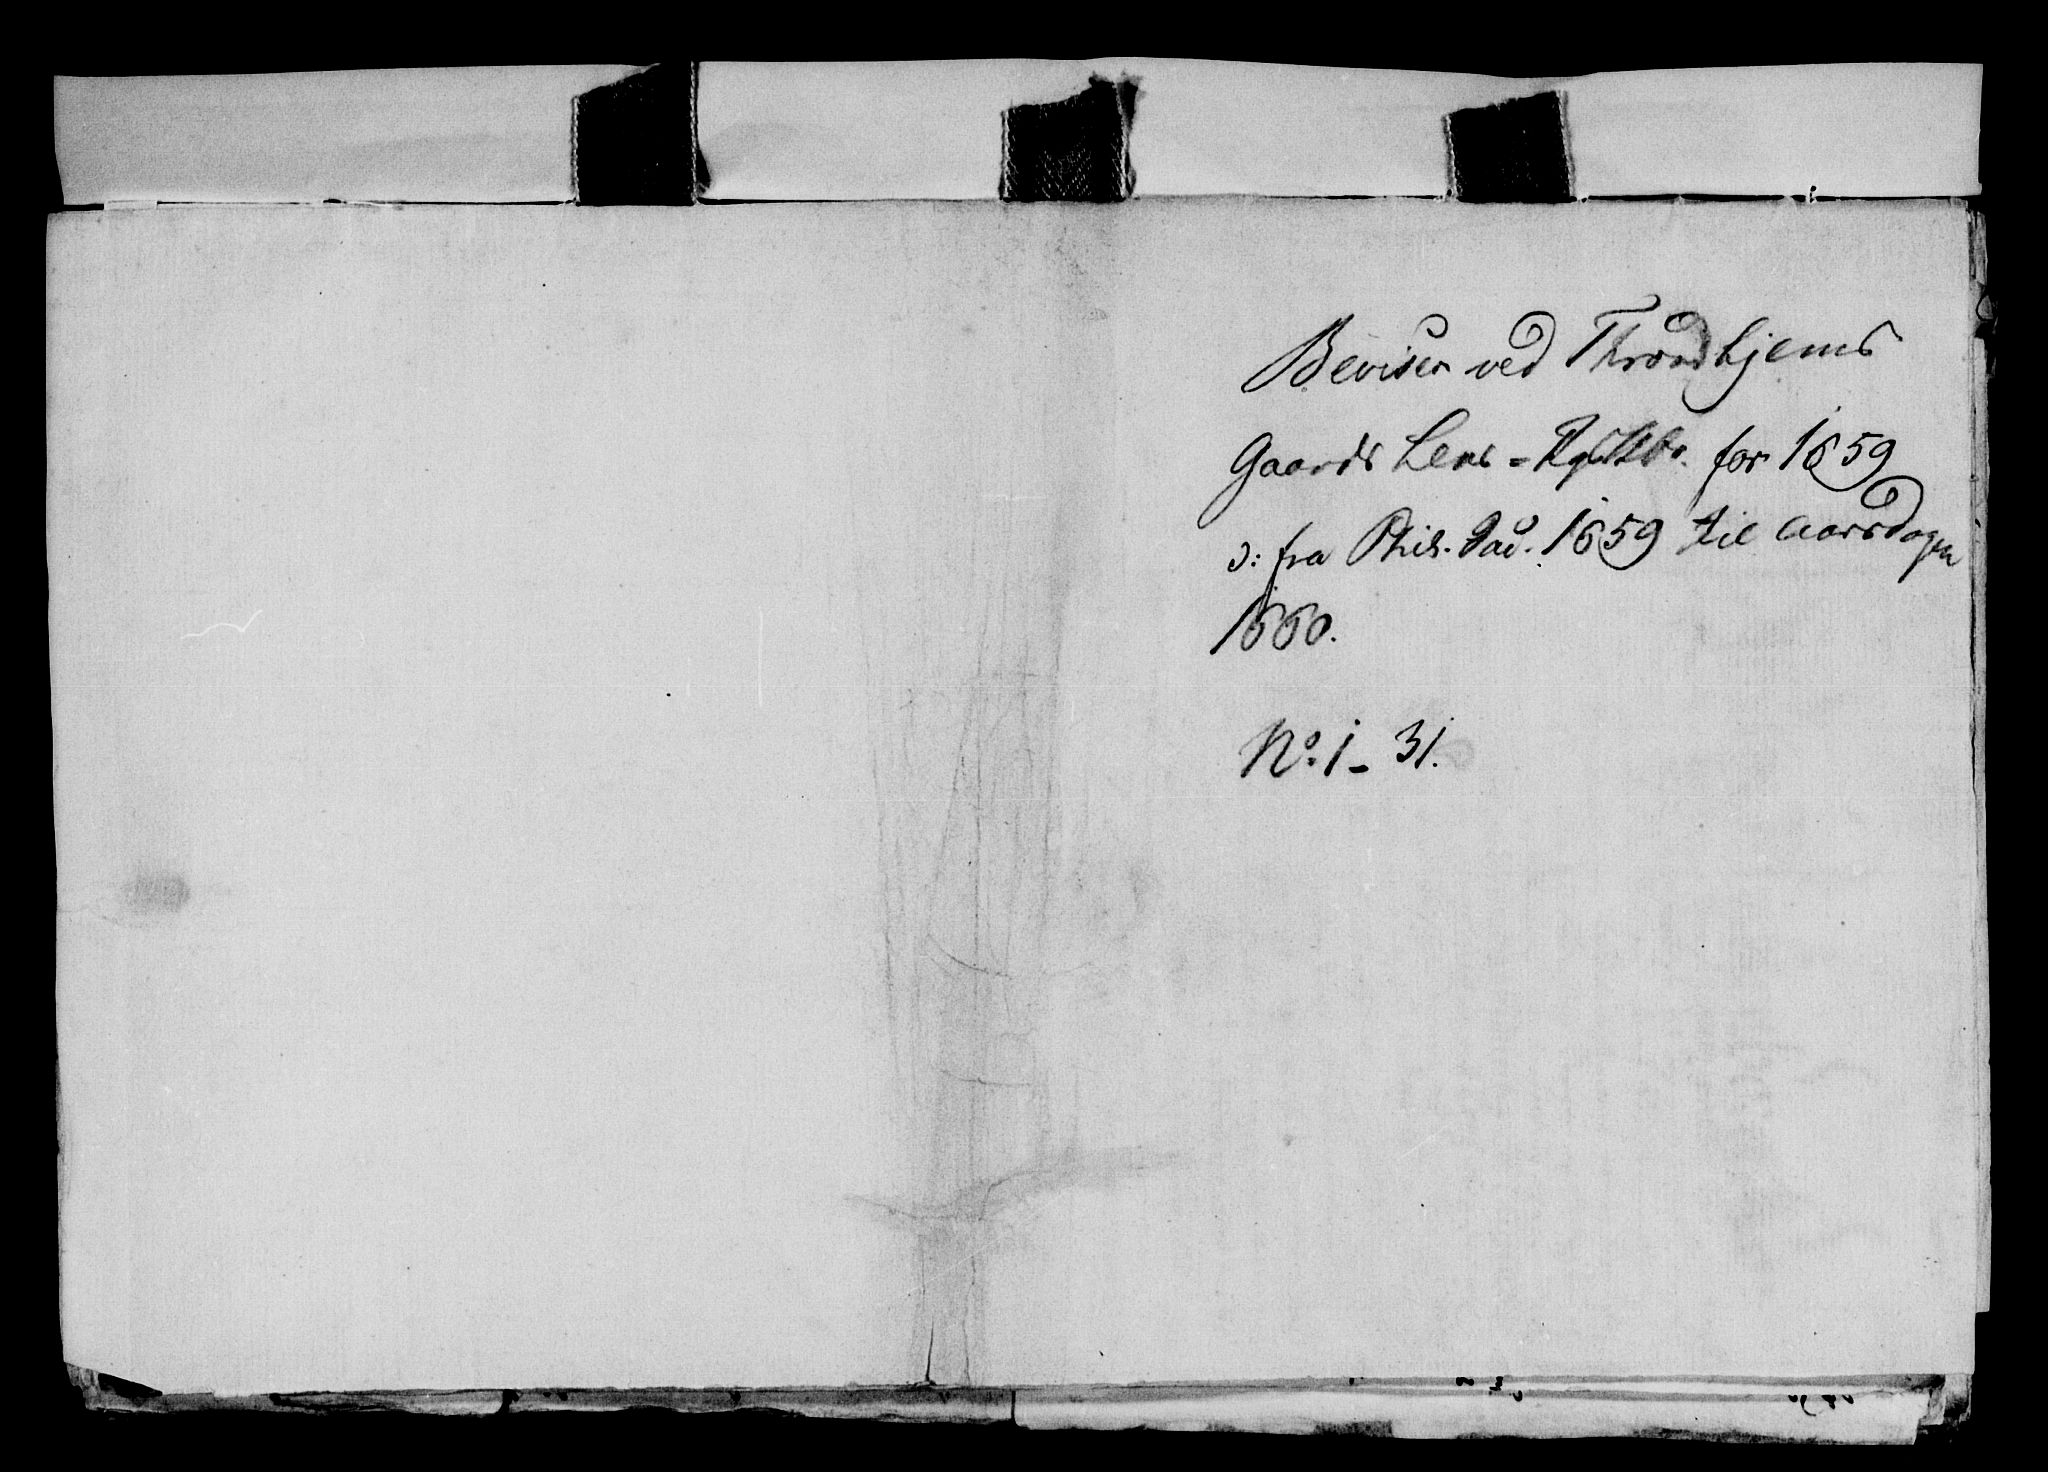 Beviser ved Throndhjems
Gaards Lens - Rgskb. for 1659
ɔ: fra Phil. Jac. 1659 til Aarsdagen
1660.
No. 1 - 31.